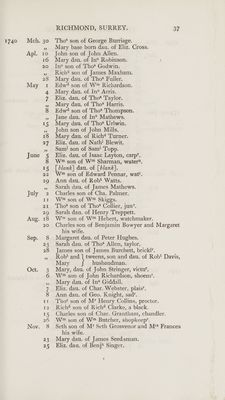 RICHMOND, SURREY. 37
1740 Mch. 30 Thoˢ son of George Burridge.
„ Mary base born dau. of Eliz. Cross.
Apl. 10 John son of John Allen.
16 Mary dau. of Jnº Robinson.
20 Jnº son of Thoˢ Godwin.
„ Richᵈ son of James Maxham.
28 Mary dau. of Thoˢ Fuller.
May 1 Edwᵈ son of Wᵐ Richardson.
4 Mary dau. of Jnº Arris.
7 Eliz. dau. of Thoˢ Taylor.
„ Mary dau. of Thoˢ Harris.
8 Edwᵈ son of Thoˢ Thompson.
„ Jane dau. of Jnº Mathews.
15 Mary dau. of Thoˢ Urlwin.
„ John son of John Mills.
18 Mary dau. of Richᵈ Turner.
27 Eliz. dau. of Nathˡ Blewit.
„ Samˡ son of Samˡ Topp.
June 5 Eliz. dau. of Isaac Layton, carpʳ.
8 Wᵐ son of Wᵐ Sharman, waterⁿ.
15 [blank] dau. of [blank].
22 Wᵐ son of Edward Pennar, watʳ.
29 Ann dau. of Robᵗ Watts.
„ Sarah dau. of James Mathews.
July 2 Charles son of Cha. Palmer.
11 Wᵐ son of Wᵐ Skiggs.
21 Thoˢ son of Thoˢ Collier, junʳ.
29 Sarah dau. of Henry Treppett.
Aug. 18 Wᵐ son of Wᵐ Hebert, watchmaker.
30 Charles son of Benjamin Bowyer and Margaret
his wife.
Sep. 8 Margaret dau. of Peter Hughes.
23 Sarah dau. of Thoˢ Allen, taylor.
28 James son of James Burchett, brickl̄ʳ.
„ Robᵗ and } tweens, son and dau. of Robᵗ Davis,
Mary } husbandman.
Oct. 3 Mary, dau. of John Stringer, victuʳ.
6 Wᵐ son of John Richardson, shoemʳ.
„ Mary dau. of Jnº Giddall.
7 Eliz. dau. of Char. Webster, plaisʳ.
8 Ann dau. of Geo. Knight, sadʳ.
11 Thoˢ son of Mʳ Henry Collins, proctor.
12 Richᵈ son of Richᵈ Clarke, a black.
15 Charles son of Char. Grantham, chandler.
26 Wᵐ son of Wᵐ Butcher, shopkeepʳ.
Nov. 8 Seth son of Mʳ Seth Grosvenor and Mʳˢ Frances
his wife.
23 Mary dau. of James Seedsman.
25 Eliz. dau. of Benjⁿ Singer.